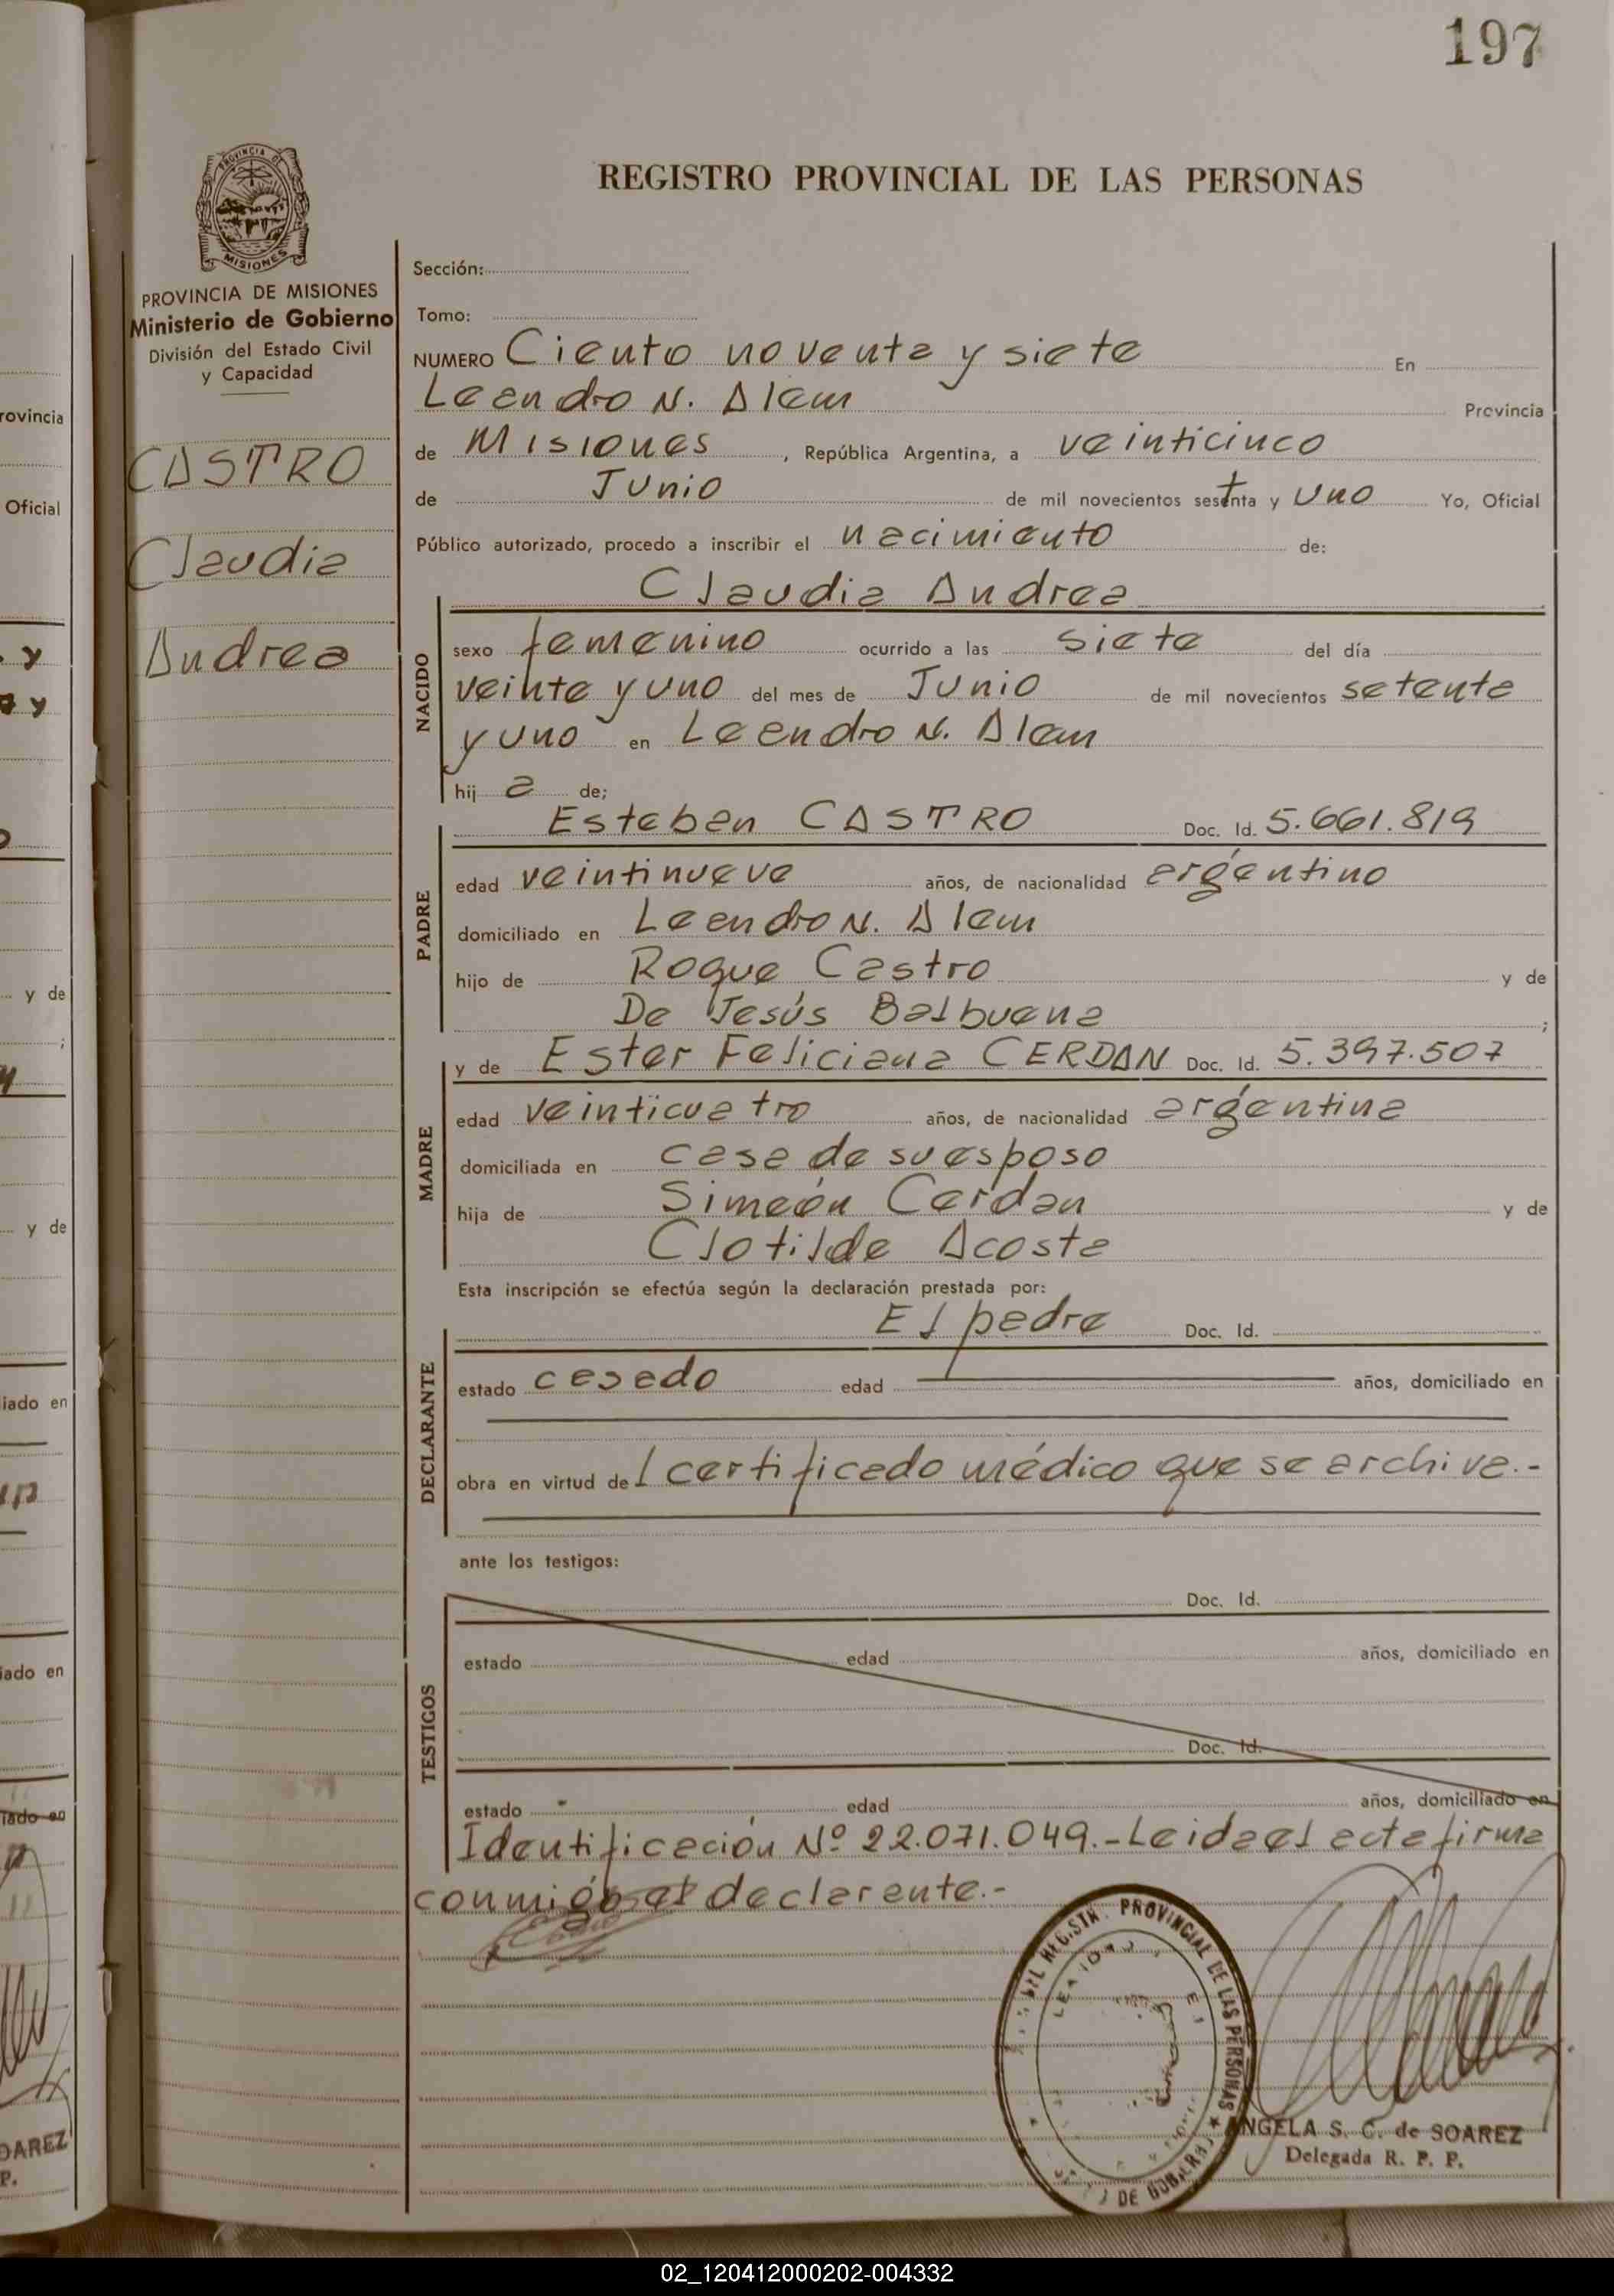 197
REGISTRO PROVINCIAL DE LAS PERSONAS
PROVINCIA DE
MISIONES
PROVINCIA DE MISIONES
Ministerio de Gobierno
División del Estado Civil
y Capacidad
CASTRO
Claudia
Andrea
Sección:
Tomo:
NUMERO Ciento noventa y siete En
Leandro N. Alem Provincia
de Misiones, República Argentina, a veinticinco
de Junio de mil novecientos setenta y uno Yo, Oficial
Público autorizado, procedo a inscribir el nacimiento de:
Claudia Andrea
NACIDO
sexo femenino ocurrido a las siete del día
veinte y uno del mes de Junio de mil novecientos setenta
y uno en Leandro N. Alem
hij a de;
Esteban CASTRO Doc. Id. 5.661.819
PADRE
edad veintinueve años, de nacionalidad argentino
domiciliado en Leandro N. Alem
hijo de Roque Castro y de
De Jesús Balbuena ;
y de Ester Feliciana CERDAN Doc. Id. 5.397.507
MADRE
edad veinticuatro años, de nacionalidad argentina
domiciliada en casa de su esposo
hija de Simeón Cerdan y de
Clotilde Acosta
Esta inscripción se efectúa según la declaración prestada por:
El padre Doc. Id.
DECLARANTE
estado casado edad años, domiciliado en
obra en virtud del certificado médico que se archiva.-
ante los testigos:
Doc. Id.
TESTIGOS
estado edad años, domiciliado en
Doc. Id.
estado edad años, domiciliado en
Identificación Nº 22.071.049.- Leida el acta firma
conmigo el declarante.-
PROVINCIAL DE LAS PERSONAS
ANGELA S. C. de SOAREZ
Delegada R. P. P.
rovincia
Oficial
y
y
y de
;
y de
iado en
iado en
iado en
OAREZ
P.
02_120412000202-004332